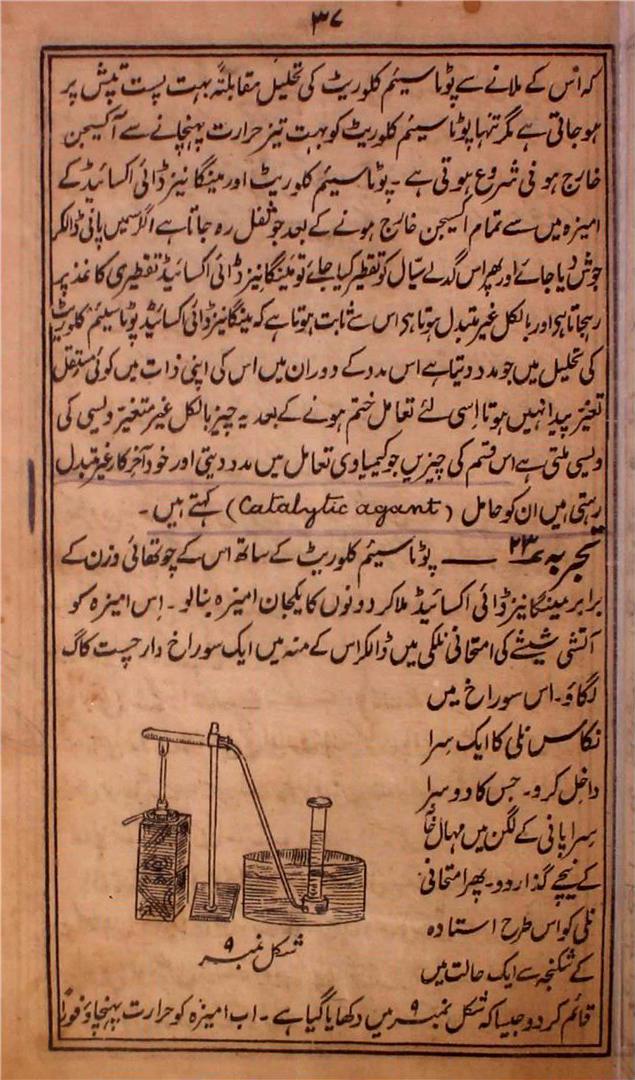 ۳۷
کہ اس کے ملانے سے پوٹاسیئم کلوریٹ کی تحلیل مقابلتہً بہت پست تپش پر
ہوجاتی ہے مگر تنہا پوٹاسیئم کلوریٹ کو بہت تیز حرارت پہنچانے سے آکسیجن
خارج ہونی شروع ہوتی ہے ۔ پوٹاسیئم کلوریٹ اور مینگانیز ڈائی آکسائیڈ کے
امیزہ میں سے تمام آکسیجن خارج ہونے کے بعد جو ثفل رہ جاتا ہے اگر اسمیں پانی ڈالکر
جوش دیا جائے اور پھر اس گدلے سیّال کو تقطیر کیا جائے تو مینگانیز ڈائی آکسائیڈ تقطیری کاغذ پر
رہجاتا ہی اور بالکل غیر متبدل ہوتا ہی اس سے ثابت ہوتا ہے کہ مینگانیز ڈائی آکسائیڈ پوٹاسیئم کلوریٹ
کی تحلیل میں جو مدد دیتا ہے اس مدد کے دوران میں اس کی اپنی ذات میں کوئی مستقل
تغیّر پیدا نہیں ہوتا اِسی لئے تعامل ختم ہونے کے بعد یہ چیز بالکل غیر متغیّر ویسی کی
ویسی ملتی ہے اس قسم کی چیزیں جو کیمیاوی تعامل میں مدد دیتی اور خود آخر کار غیر متبدل
رہتی ہیں ان کو حامل (Catalytic agant) کہتے ہیں ۔
تجربہ ۲۳ ـــــ پوٹاسیئم کلوریٹ کے ساتھ اس کے چوتھائی وزن کے
برابر مینگانیز ڈائی آکسائیڈ ملاکر دونوں کا یکجان امیزہ بنالو ۔ اِس امیزہ کو
آتشی شیشے کی امتحانی نلکی میں ڈالکر اس کے منہ میں ایک سوراخ دار چست کاگ
لگاؤ ۔ اس سوراخ میں
نکاس نلی کا ایک سِرا
داخل کرو ۔ جس کا دوسرا
سِرا پانی کے لگن میں مہال خانہ
کے نیچے گذار دو ۔ پھر امتحانی
نلی کو اس طرح استادہ
کے شکنجہ سے ایک حالت میں
شکل نمبر ۹
قائم کردو جیسا کہ شکل نمبر ۹ میں دکھایا گیا ہے ۔ اب امیزہ کو حرارت پہنچاؤ فوراً